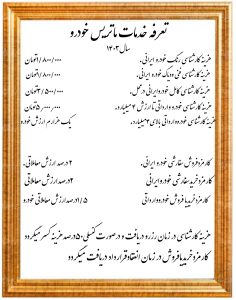 تعرفه خدمات ماتریس خودرو
سال ۱۴۰۳
هزینه کارشناسی رنگ خودرو ایرانی. ۱/۸۰۰/۰۰۰تومان
هزینه کارشناسی فنی ودیاگ خودرو ایرانی. ۱/۸۰۰/۰۰۰تومان
هزینه کارشناسی کامل خودرو ایرانی درمحل. ۳/۵۰۰/۰۰۰تومان
هزینه کارشناسی خودرو وارداتی تا ارزش ۴میلیارد. ۵/۰۰۰/۰۰۰تومان
هزینه کارشناسی خودرو وارداتی بالای ۴میلیارد. یک هزارم ارزش خودرو
کارمزد فروش سفارشی خودرو ایرانی. ۲درصد ارزش معاملاتی.
کارمزد خرید سفارشی خودرو ایرانی. ۲درصد ارزش معاملاتی
کارمزد خرید یا فروش خودرو وارداتی ۱/۵درصد ارزش معاملاتی خودرو
هزینه کارشناسی در زمان رزرو دریافت و درصورت کنسلی ۵۰درصد هزینه کسر میگردد
کارمزد خرید یا فروش در زمان انعقاد قرارداد دریافت میگردد